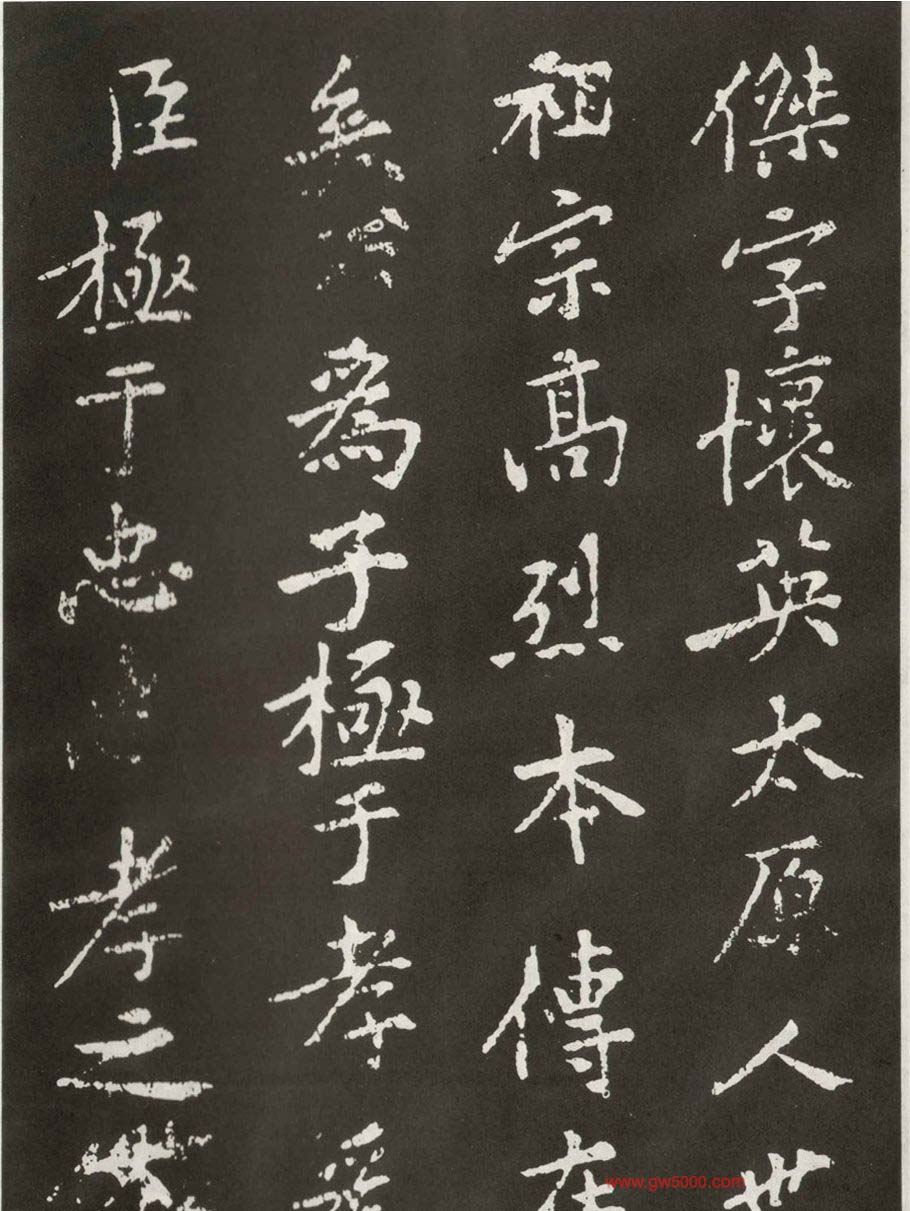 傑字懷英太原人世
祖宗髙烈本傳在
為子極于孝為
臣極于忠孝之
www.gw5000.com